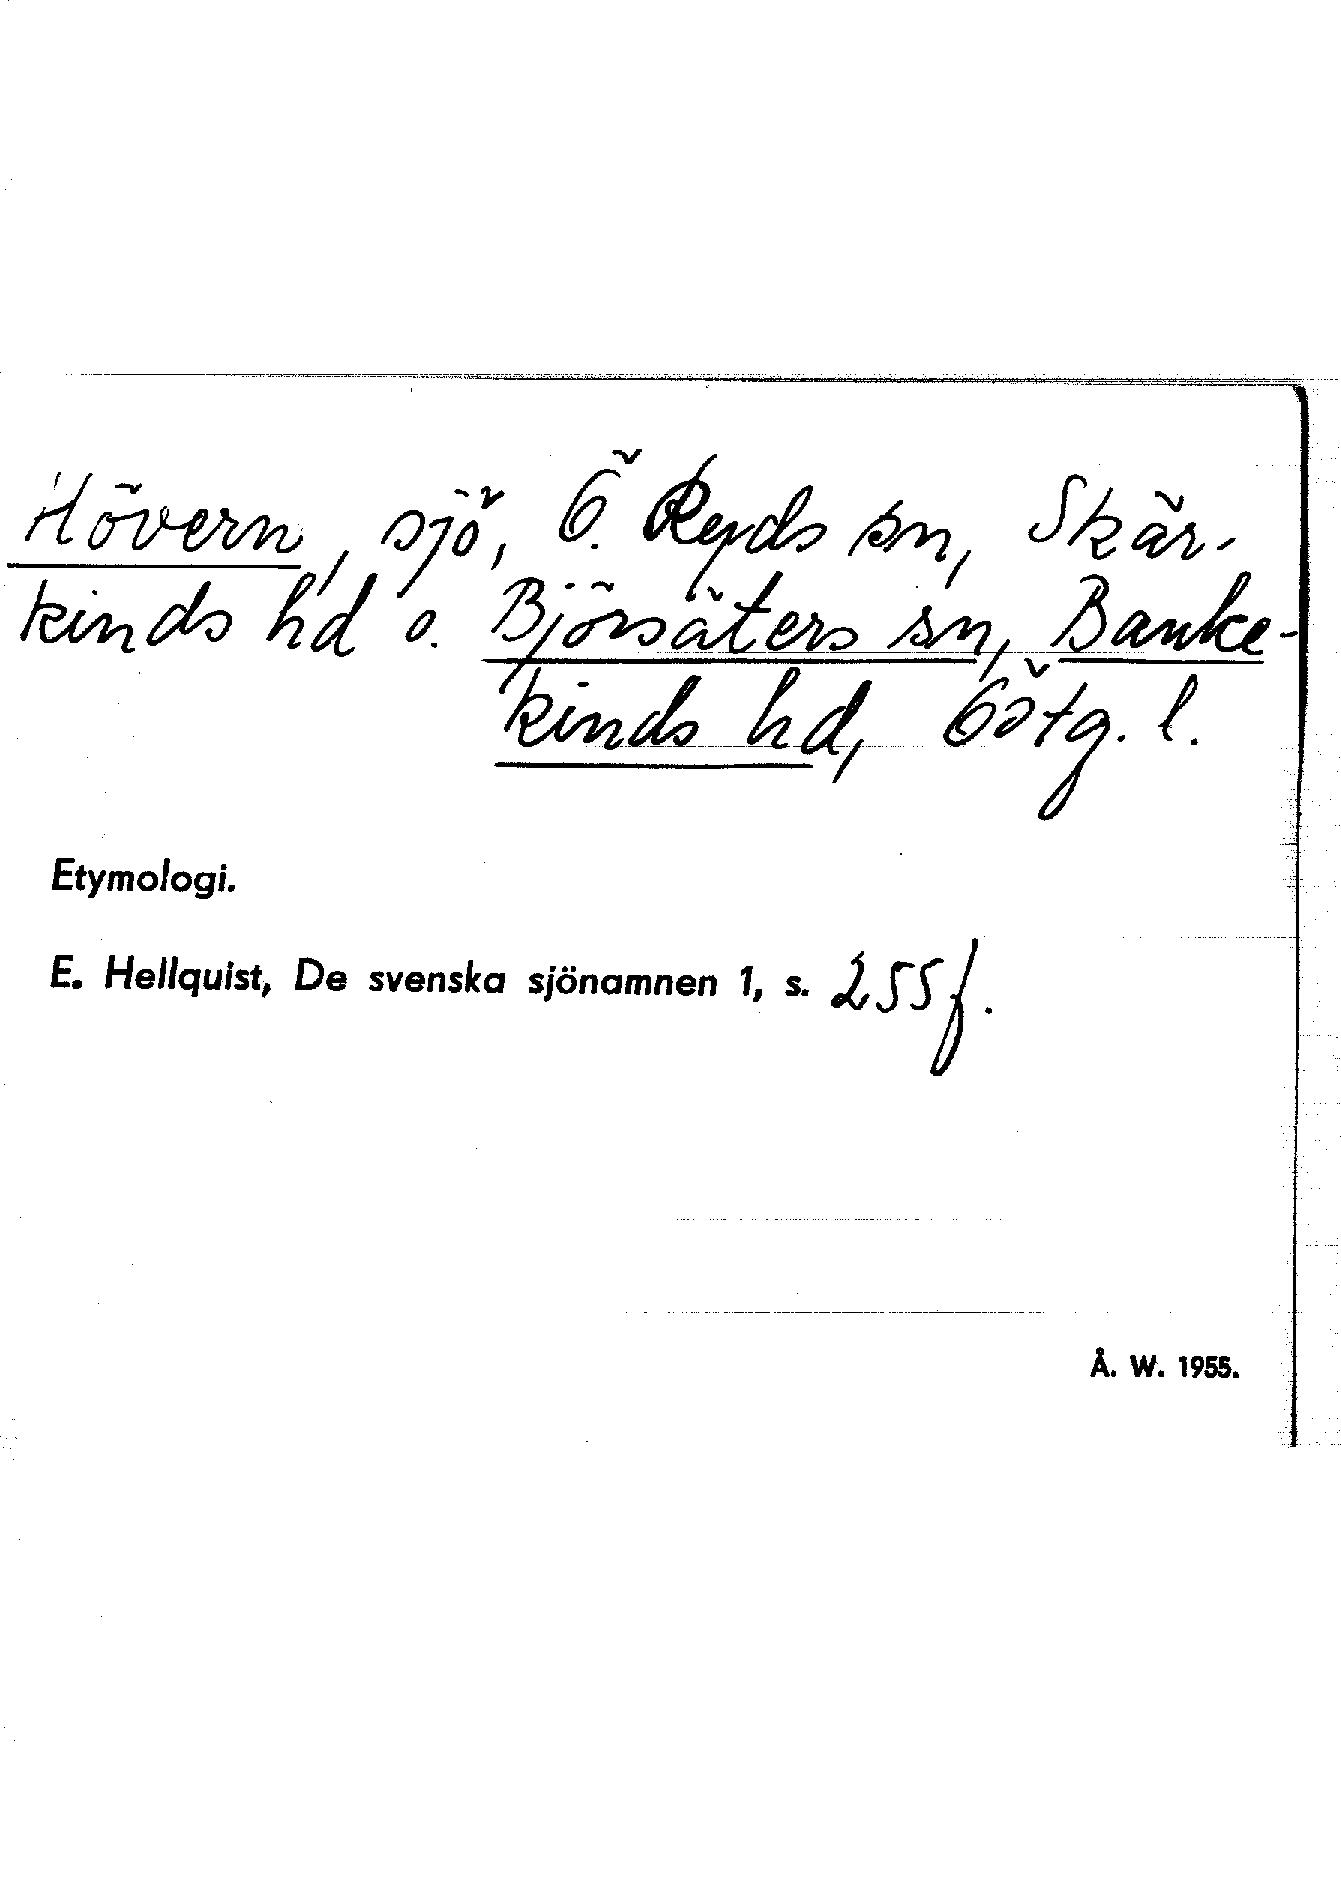 Hövern, sjö, Ö. Ryds sn, Skär-
kinds hd o. Björsäters sn, Banke-
kinds hd, Östg. l.
Etymologi.
E. Hellquist, De svenska sjönamnen 1, s. 255 f.
Å. W. 1955.